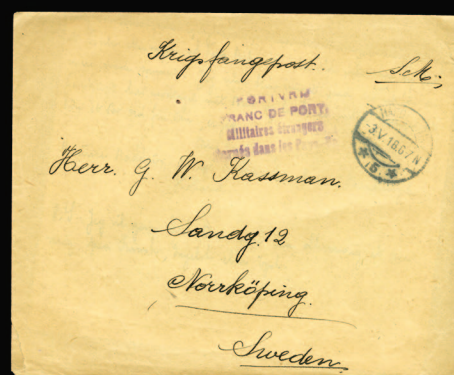 Krigsfangepost.
PORTVRIJ
FRANC DE PORT.
Militaires étrangers
dans les
-3.V.18.6-7N
* 5. *
Herr. G. W. Kassman.
Sandg. 12
Norrköping.
Sweden.